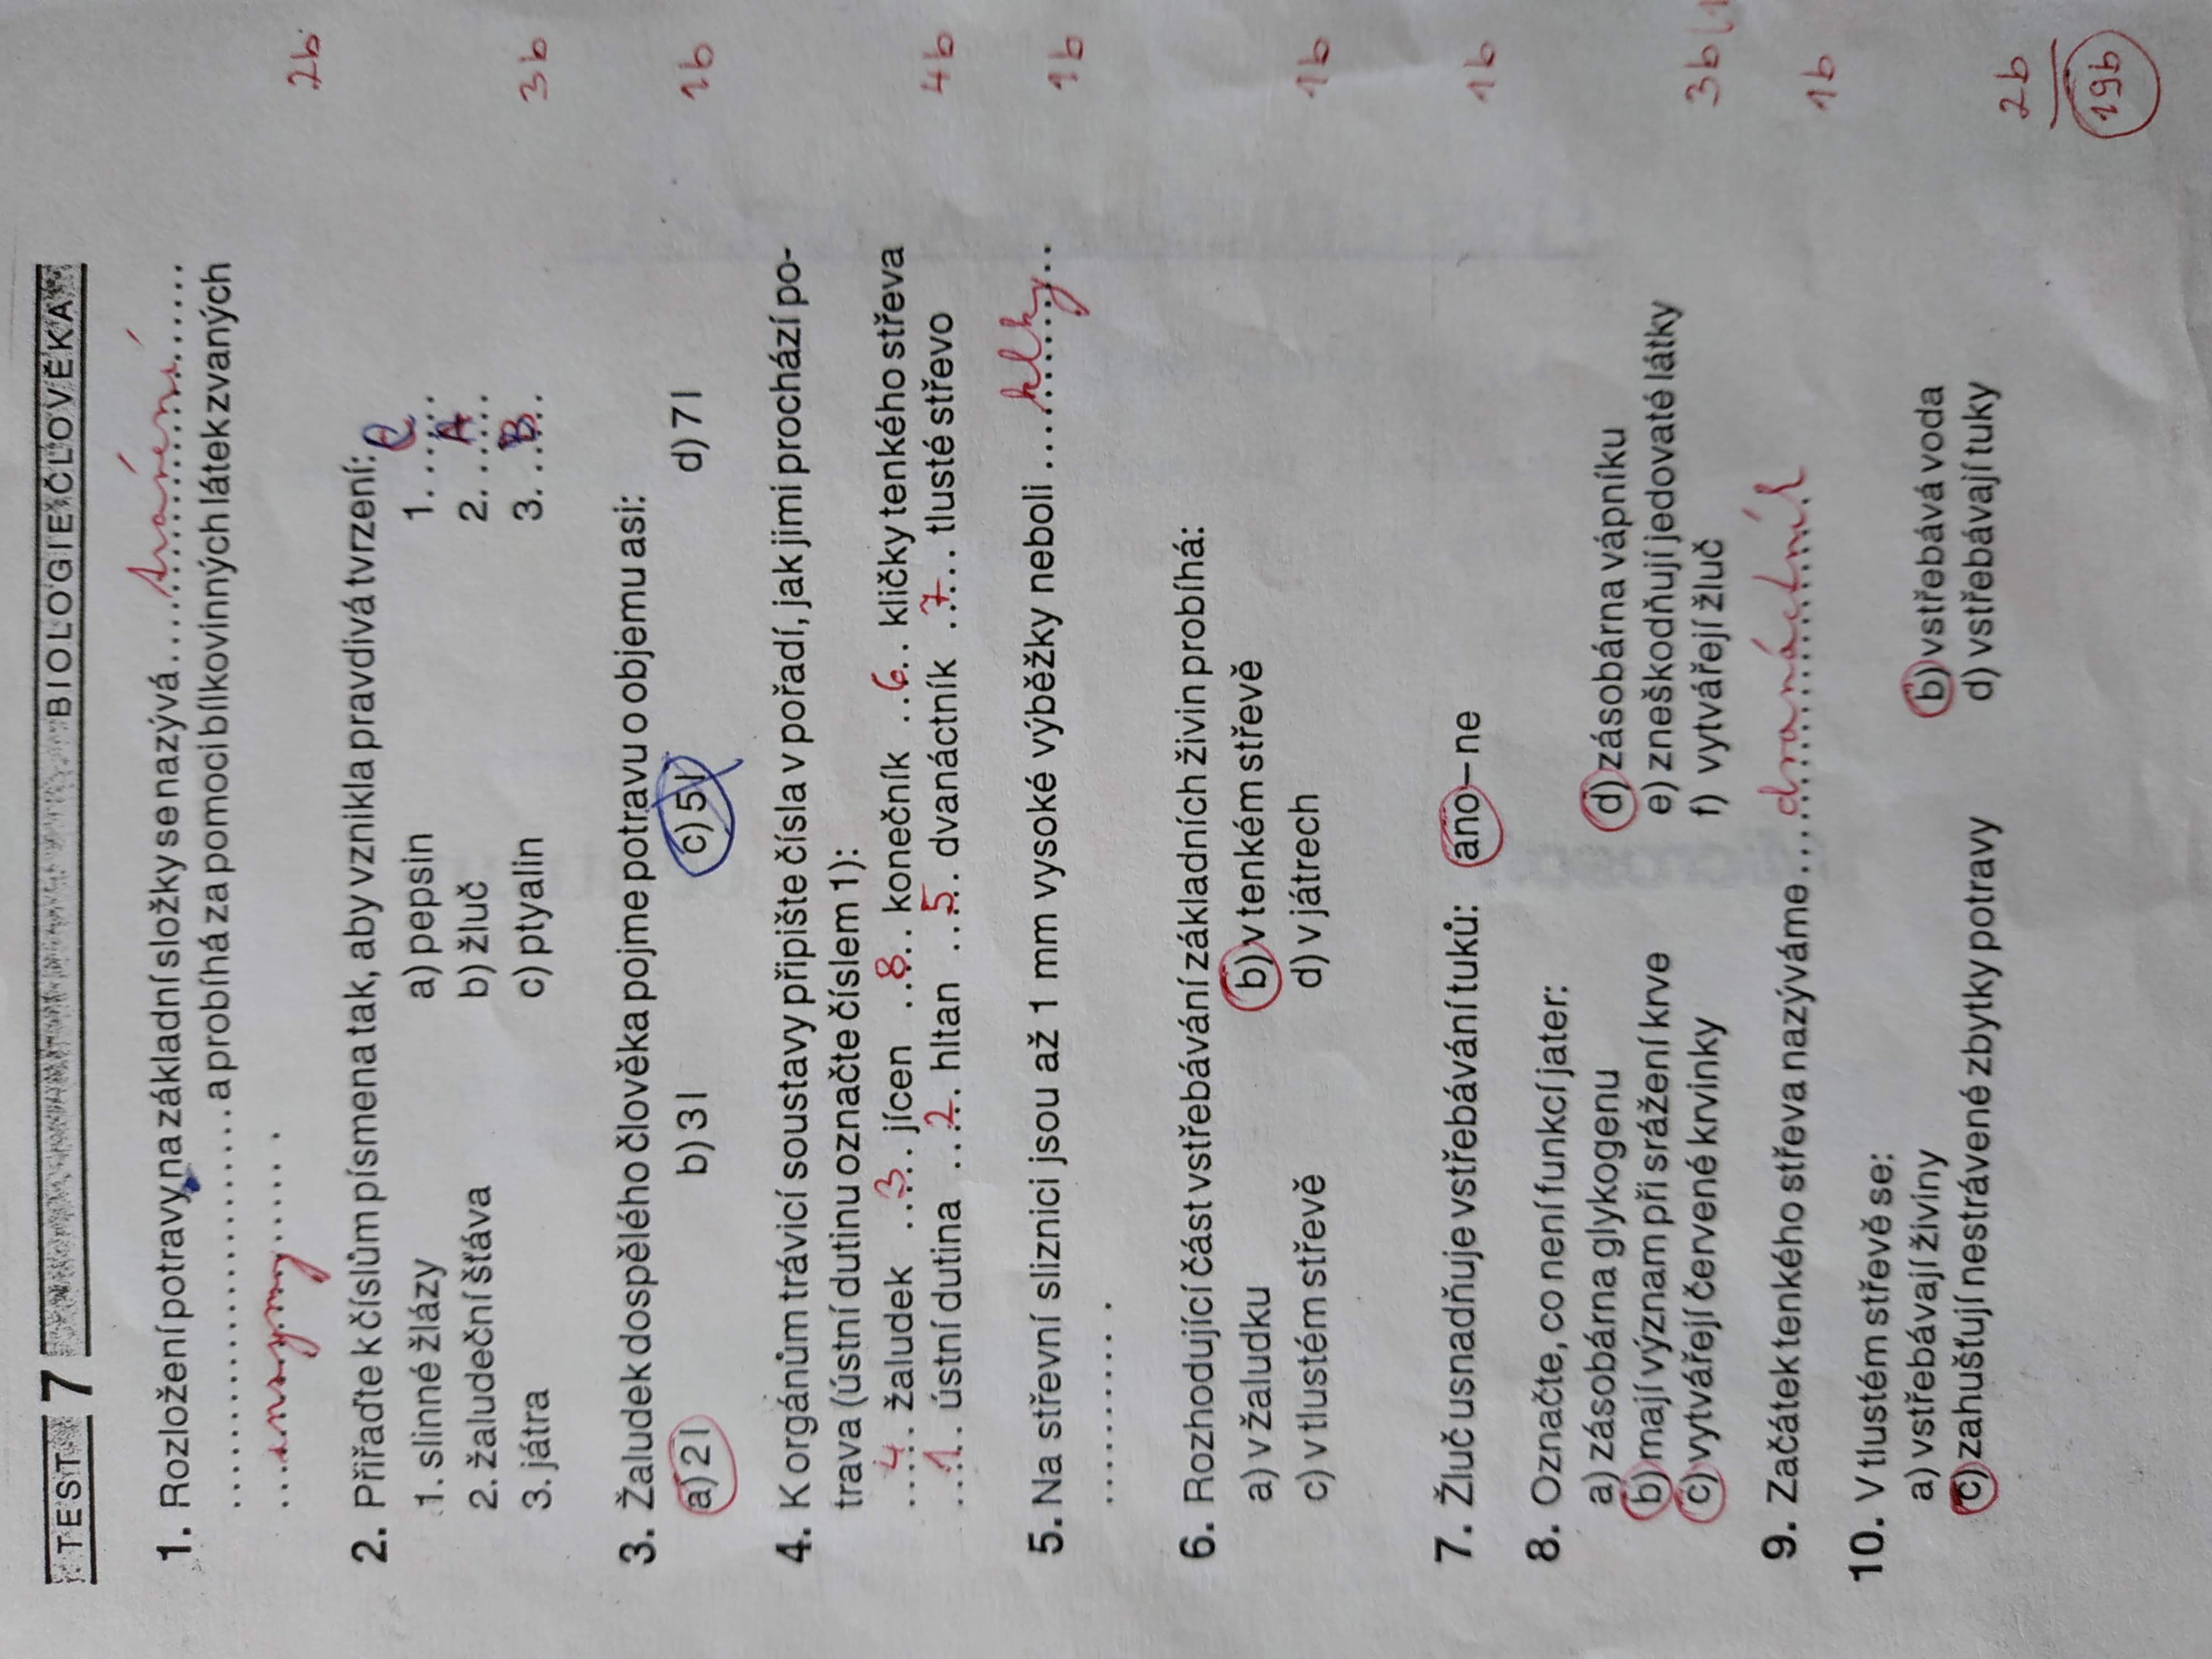 TEST 7 BIOLOGIE ČLOVĚKA
1. Rozložení potravy na základní složky se nazývá .... trávení ....
.................... a probíhá za pomoci bílkovinných látek zvaných
... enzymy ..... 2b
2. Přiřaďte k číslům písmena tak, aby vznikla pravdivá tvrzení:
1. slinné žlázy a) pepsin 1. ..C..
2. žaludeční šťáva b) žluč 2. ..A..
3. játra c) ptyalin 3. ..B.. 3b
3. Žaludek dospělého člověka pojme potravu o objemu asi:
a) 2 l b) 3 l c) 5 l d) 7 l 1b
4. K orgánům trávicí soustavy připište čísla v pořadí, jak jimi prochází po-
trava (ústní dutinu označte číslem 1):
..4.. žaludek ..3.. jícen ..8.. konečník ..6.. kličky tenkého střeva
..1.. ústní dutina ..2.. hltan ..5.. dvanáctník ..7.. tlusté střevo 4b
5. Na střevní sliznici jsou až 1 mm vysoké výběžky neboli .... klky ....
.......... 1b
6. Rozhodující část vstřebávání základních živin probíhá:
a) v žaludku b) v tenkém střevě
c) v tlustém střevě d) v játrech 1b
7. Žluč usnadňuje vstřebávání tuků: ano – ne 1b
8. Označte, co není funkcí jater:
a) zásobárna glykogenu d) zásobárna vápníku
b) mají význam při srážení krve e) zneškodňují jedovaté látky
c) vytvářejí červené krvinky f) vytvářejí žluč 3b
9. Začátek tenkého střeva nazýváme .... dvanáctník 1b
10. V tlustém střevě se:
a) vstřebávají živiny b) vstřebává voda
c) zahušťují nestrávené zbytky potravy d) vstřebávají tuky 2b
19b